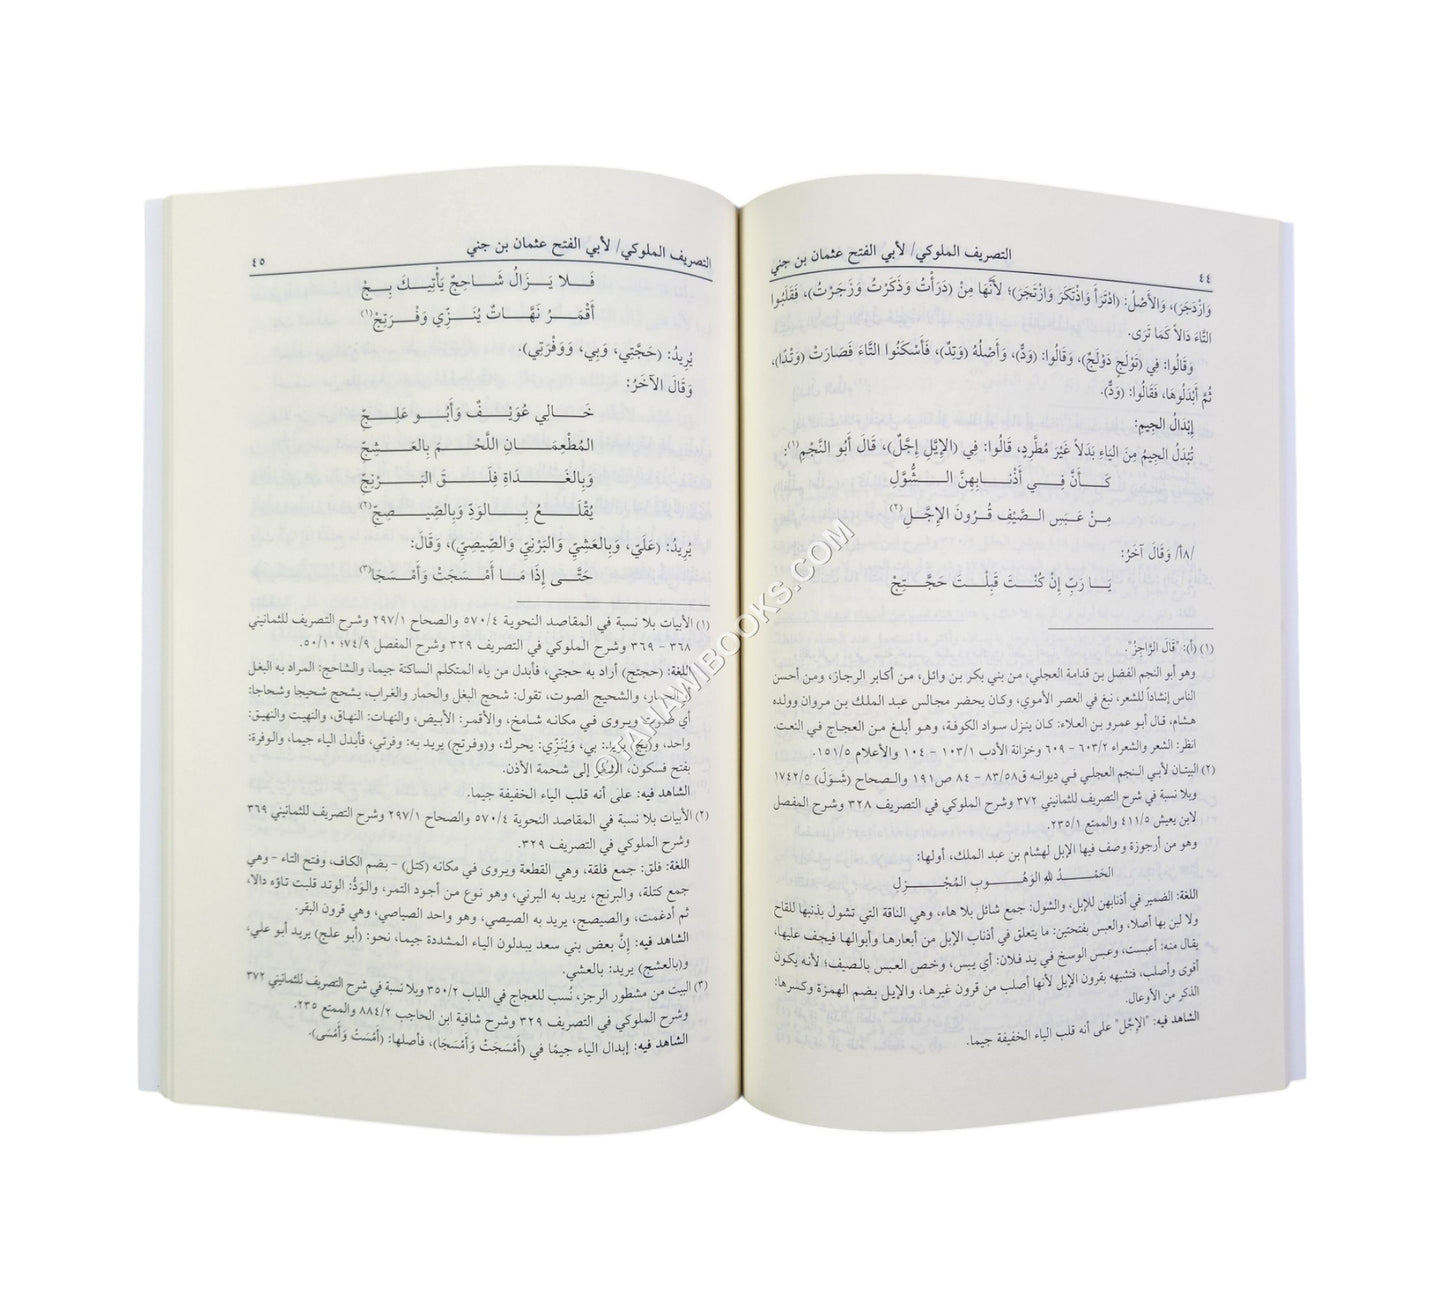 ٤٤
التصريف الملوكي/ لأبي الفتح عثمان بن جني
وَازْدَجَرَ)، وَالأَصْلُ: (ادْتَرَأَ وَاذْتَكَرَ وَازْتَجَرَ)؛ لأَنَّهَا مِنْ (دَرَأْتُ وَذَكَرْتُ وَزَجَرْتُ)، فَقَلَبُوا
التَّاءَ دَالاً كَمَا تَرَى.
وَقَالُوا: فِي (تَوْلَجٍ دَوْلَجٌ)، وَقَالُوا: (وَدٌّ)، وَأَصْلُهُ (وَتِدٌ)، فَأَسْكَنُوا التَّاءَ فَصَارَتْ (وَتْدًا)،
ثُمَّ أَبْدَلُوهَا، فَقَالُوا: (وَدٌّ).
إِبْدَالُ الجِيمِ:
تُبْدَلُ الجِيمُ مِنَ اليَاءِ بَدَلاً غَيْرَ مُطَّرِدٍ، قَالُوا: فِي (الإِيَّلِ إِجَّلٌ)، قَالَ أَبُو النَّجْمِ(١):
كَــأَنَّ فِــي أَذْنَــابِهِنَّ الــشُّوَّلِ
مِنْ عَبَسِ الصَّيْفِ قُرُونَ الإِجَّلِ(٢)
/٨أ/ وَقَالَ آخَرُ:
يَــا رَبِّ إِنْ كُنْــتَ قَبِلْــتَ حَجَّــتِجْ
(١) (أ): "قَالَ الرَّاجِزُ".
وهو أبو النجم الفضل بن قدامة العجلي، من بني بكر بن وائل، من أكابر الرجاز، ومن أحسن
الناس إنشاداً للشعر، نبغ في العصر الأموي، وكان يحضر مجالس عبد الملك بن مروان وولده
هشام، قال أبو عمرو بن العلاء: كان ينزل سواد الكوفة، وهو أبلغ من العجاج في النعت.
انظر: الشعر والشعراء ٦٠٣/٢ - ٦٠٩ وخزانة الأدب ١٠٣/١ - ١٠٤ والأعلام ١٥١/٥.
(٢) البيتان لأبي النجم العجلي في ديوانه ق٨٣/٥٨ - ٨٤ ص١٩١ والصحاح (شَوَلَ) ١٧٤٢/٥
وبلا نسبة في شرح التصريف للثمانيني ٣٧٢ وشرح الملوكي في التصريف ٣٢٨ وشرح المفصل
لابن يعيش ٤١١/٥ والممتع ٢٣٥/١.
وهو من أرجوزة وصف فيها الإبل لهشام بن عبد الملك، أولها:
الحَمْــدُ للهِ الوَهُــوبِ المُجْــزِلِ
اللغة: الضمير في أذنابهن للإبل، والشول: جمع شائل بلا هاء، وهي الناقة التي تشول بذنبها للقاح
ولا لبن بها أصلا، والعبس بفتحتين: ما يتعلق في أذناب الإبل من أبعارها وأبوالها فيجف عليها،
يقال منه: أعبست، وعبس الوسخ في يد فلان: أي يبس، وخص العبس بالصيف؛ لأنه يكون
أقوى وأصلب، فتشبهه بقرون الإيل لأنها أصلب من قرون غيرها، والإيل بضم الهمزة وكسرها:
الذكر من الأوعال.
الشاهد فيه: "الإجَّل" على أنه قلب الياء الخفيفة جيما.
التصريف الملوكي/ لأبي الفتح عثمان بن جني
٤٥
فَــلا يَــزَالُ شَــاحِجٌ يَأْتِيــكَ بِــجْ
أَقْمَــرُ نَهَّــاتٌ يُنَــزِّي وَفْــرَتِجْ(١)
يُرِيدُ: (حَجَّتِي، وَبِي، وَوَفْرَتِي).
وَقَالَ الآخَرُ:
خَــالِي عُوَيْــفٌ وَأَبُــو عَلِــجِّ
المُطْعِمَــانِ اللَّحْــمَ بِالعَــشِجِّ
وَبِالغَــدَاةِ فِلَــقَ البَــرْنِجِّ
يُقْلَــعُ بِــالوَدِّ وَبِالصِّيــصِجِّ(٢)
يُرِيدُ: (عَلَيّ، وَبِالعَشِيِّ وَالبَرْنِيِّ وَالصِّيصِيِّ)، وَقَالَ:
حَتَّــى إِذَا مَــا أَمْــسَجَتْ وَأَمْــسَجَا(٣)
(١) الأبيات بلا نسبة في المقاصد النحوية ٥٧٠/٤ والصحاح ٢٩٧/١ وشرح التصريف للثمانيني
٣٦٨ - ٣٦٩ وشرح الملوكي في التصريف ٣٢٩ وشرح المفصل ٧٤/٩؛ ٥٠/١٠.
اللغة: (حجتج) أراد به حجتي، فأبدل من ياء المتكلم الساكنة جيما، والشاحج: المراد به البغل
والحمار، والشحيج الصوت، تقول: شحج البغل والحمار والغراب، يشحج شحيجا وشحاجا:
أي صوت، ويروى في مكانه شامخ، والأقمر: الأبيض، والنهات: النهاق، والنهيت والنهيق:
واحد، و(بج) يريد: بي، ويُنَزِّي: يحرك، و(وفرتج) يريد به: وفرتي، فأبدل الياء جيما، والوفرة:
بفتح فسكون، الشعر إلى شحمة الأذن.
الشاهد فيه: على أنه قلب الياء الخفيفة جيما.
(٢) الأبيات بلا نسبة في المقاصد النحوية ٥٧٠/٤ والصحاح ٢٩٧/١ وشرح التصريف للثمانيني ٣٦٩
وشرح الملوكي في التصريف ٣٢٩.
اللغة: فلق: جمع فلقة، وهي القطعة ويروى في مكانه (كتل) - بضم الكاف، وفتح التاء - وهي
جمع كتلة، والبرنج، يريد به البرني، وهو نوع من أجود التمر، والوَدُّ: الوتد قلبت تاؤه دالا،
ثم أدغمت، والصيصج، يريد به الصيصي، وهو واحد الصياصي، وهي قرون البقر.
الشاهد فيه: إنَّ بعض بني سعد يبدلون الياء المشددة جيما، نحو: (أبو علج) يريد أبو علي،
و(بالعشج) يريد: بالعشي.
(٣) البيت من مشطور الرجز، نُسب للعجاج في اللباب ٣٥٠/٢ وبلا نسبة في شرح التصريف للثمانيني ٣٧٢
وشرح الملوكي في التصريف ٣٢٩ وشرح شافية ابن الحاجب ٨٨٤/٢ والممتع ٢٣٥.
الشاهد فيه: إبدال الياء جيمًا في (أَمْسَجَتْ وَأَمْسَجَا)، فأصلها: (أَمْسَتْ وَأَمْسَى).
©TAHAWIBOOKS.COM